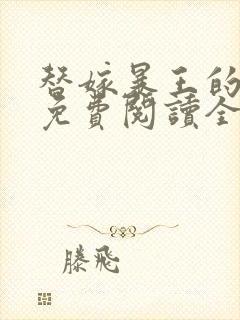 替嫁暴王的
免費閱讀全
滕飛